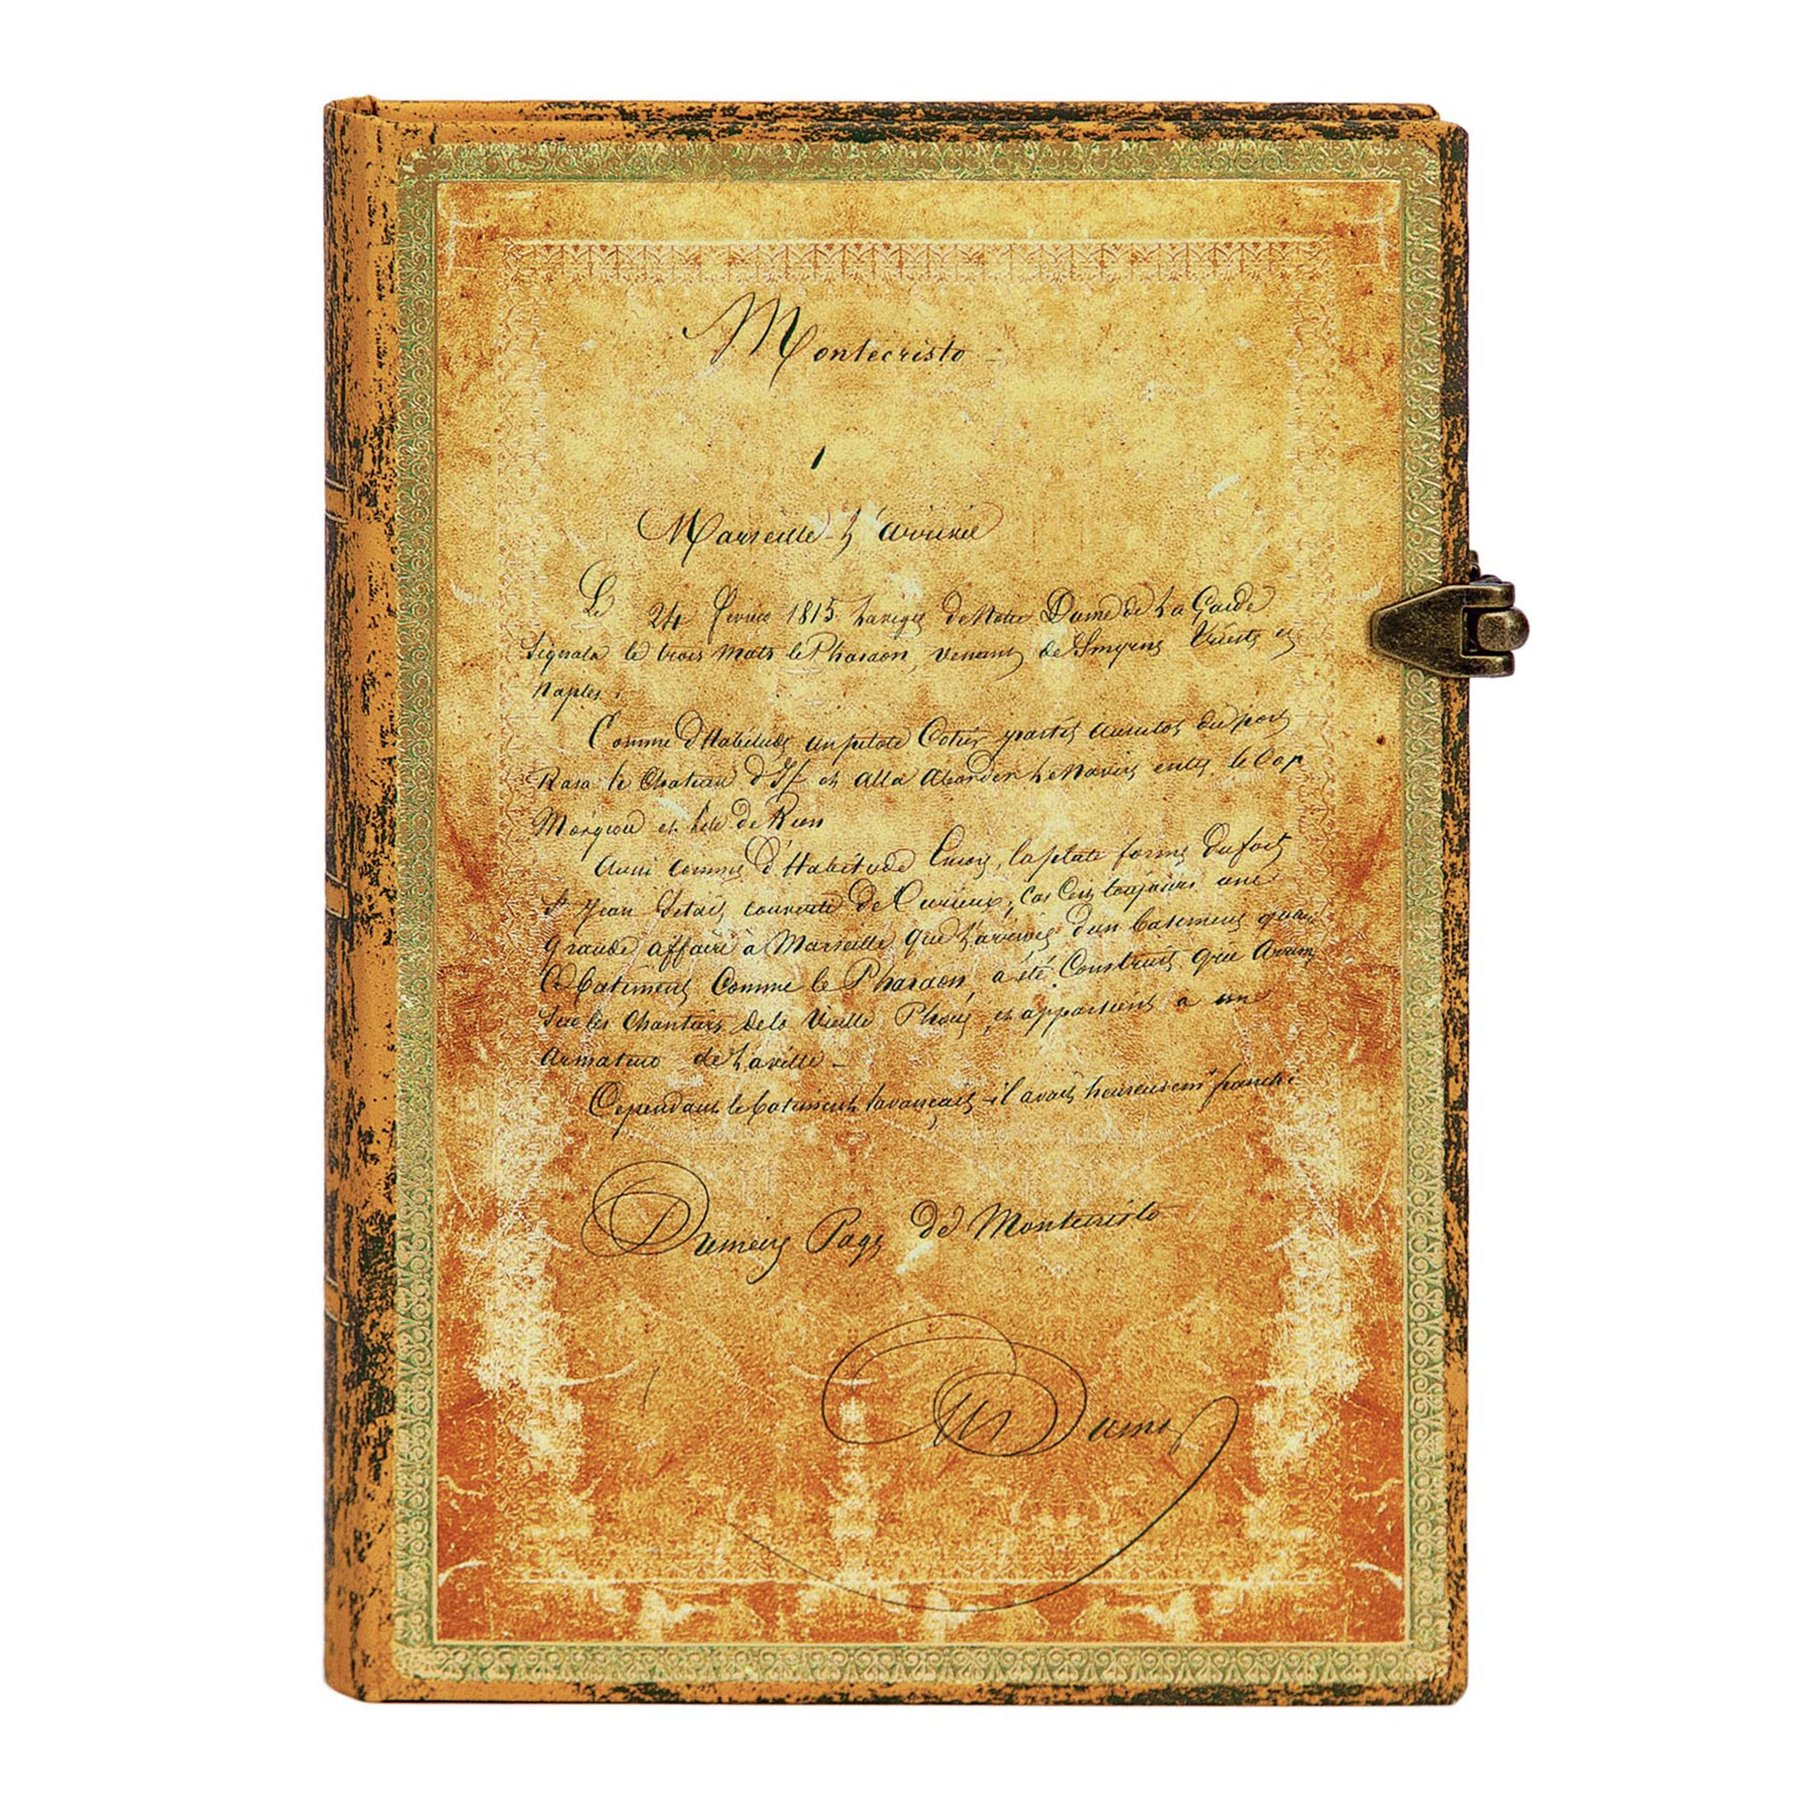 Montecristo –
1
Marseille – L'arrivée
Le 24 février 1815 la vigie de Notre Dame de La Garde
signala le trois mats le Pharaon, venant de Smyrne Trieste et
Naples.
Comme d'Habitude un pilote Cotier partit aussitot du port
Rasa le Chateau d'If et alla aborder le Navire entre le Cap
Morgiou et l'ile de Rion
Aussi comme d'Habitude encore, la plate forme du fort
St Jean s'était couverte de Curieux, Car C'est toujours une
grande affaire à Marseille que l'arrivée d'un batiment quand
Ce batiment Comme le Pharaon a été Construit grée Arrimé
Sur les Chantiers de la Vieille Phocée et appartient a un
Armateur de la ville –
Cependant le batiment s'avançait – il avait heureusemt franchi
Dernière Page de Montecristo
Al Dumas